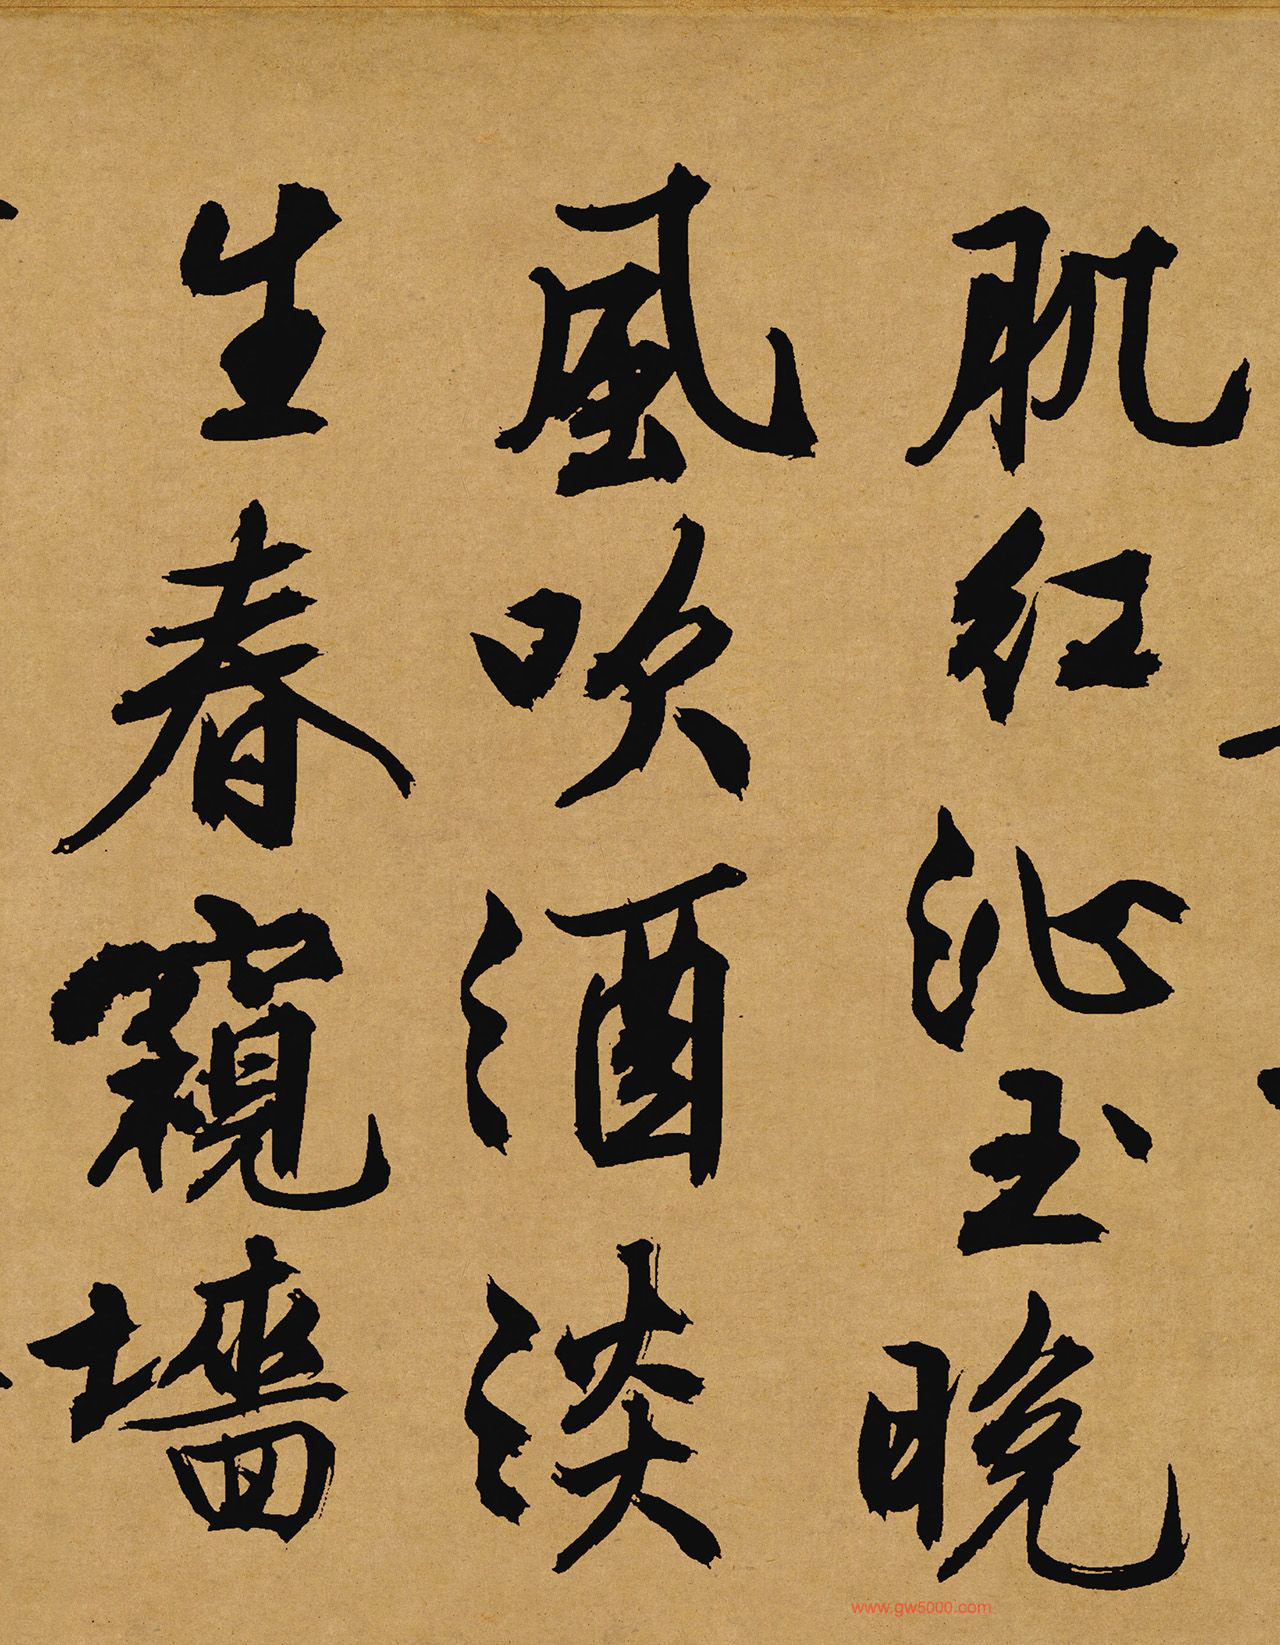 肌红沁玉晚
風吹酒淡
生春窺墙
www.gw5000.com